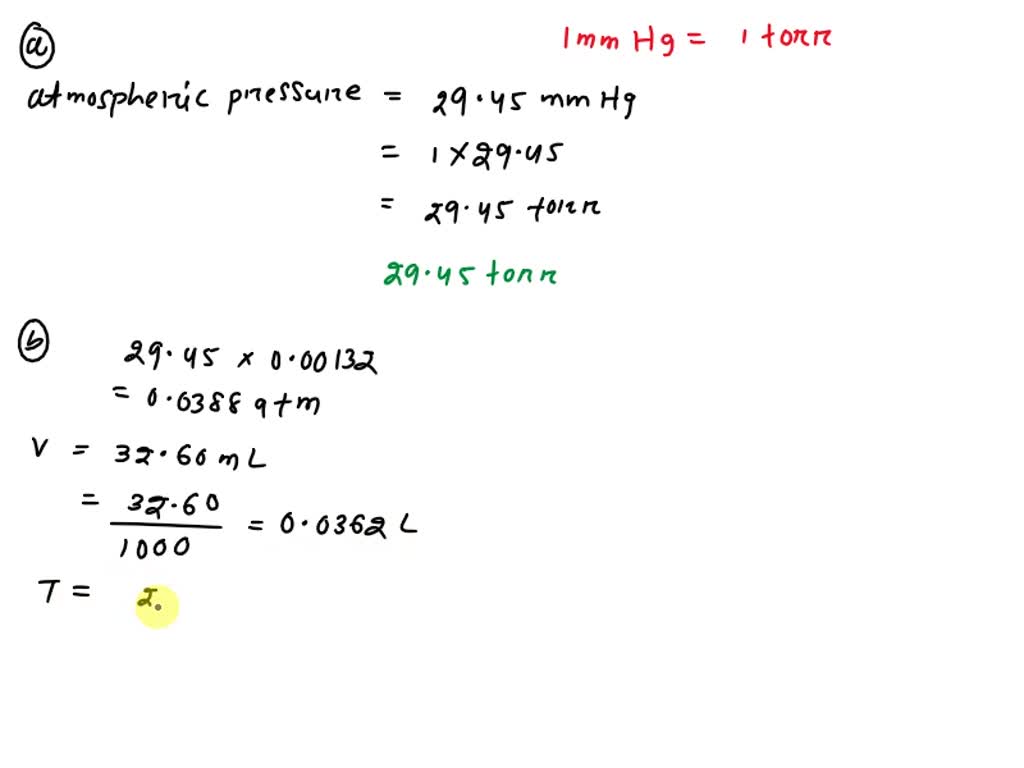 a
1 mm Hg = 1 torr
atmospheric pressure = 29.45 mm Hg
= 1 × 29.45
= 29.45 torr
29.45 torr
b
29.45 × 0.00132
= 0.0388 atm
V = 32.60 mL
= 32.60 / 1000 = 0.0362 L
T = 2